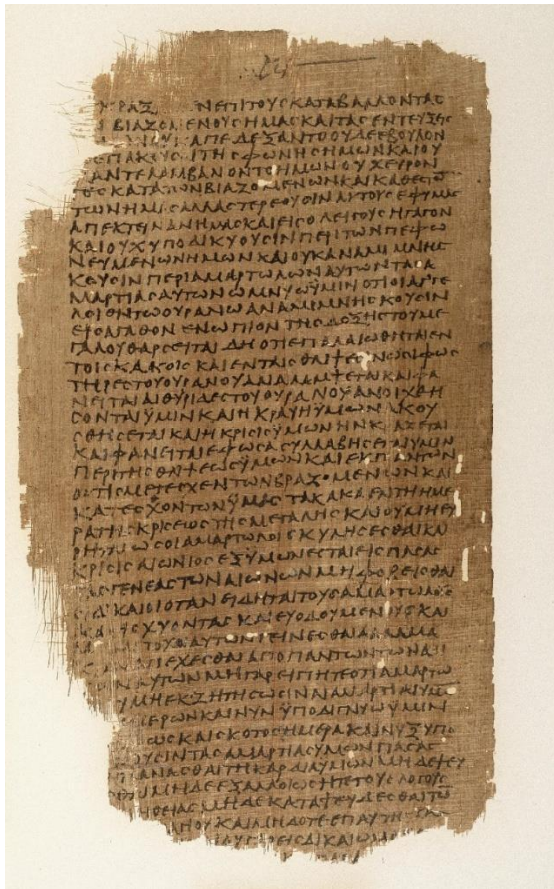 ΝΕΠΙΤΟΥϹΚΑΤΑΒΑΛΛΟΝΤΑϹ
ΒΙΑΖΟΜΕΝΟΥϹΗΜΑϹΚΑΙΤΑϹΕΝΤΕΥΞΕΙϹ
ΑΠΕΔΕΞΑΝΤΟΟΥΔΕΕΒΟΥΛΟΝ
ΕΠΑΚΟΥϹΑΙΤΗϹΦΩΝΗϹΗΜΩΝΚΑΙΟΥ
ΑΝΤΕΛΑΜΒΑΝΟΝΤΟΗΜΩΝΟΥΧΕΥΡΟΝ
ΚΑΤΑΤΩΝΒΙΑΖΟΜΕΝΩΝΚΑΙΚΑΤΕϹΘΟ
ΤΩΝΗΜΑϹΑΛΛΑϹΤΕΡΕΟΥϹΙΝΑΥΤΟΥϹΕΦΥΜΑϹ
ΑΠΕΚΤΕΙΝΑΝΗΜΑϹΚΑΙΕΙϹΟΛΕΙΓΟΥϹΗΓΑΓΟΝ
ΚΑΙΟΥΧΥΠΟΔΙΚΥΟΥϹΙΝΠΕΡΙΤΩΝΠΕΦΟ
ΝΕΥΜΕΝΩΝΗΜΩΝΚΑΙΟΥΚΑΝΑΜΙΜΝΗϹ
ΚΟΥϹΙΝΠΕΡΙΑΜΑΡΤΩΛΩΝΑΥΤΩΝΤΑϹΑ
ΜΑΡΤΙΑϹΑΥΤΩΝΟΜΝΥΩΫΜΙΝΟΤΙΟΙΑΓΓΕ
ΛΟΙΕΝΤΩΟΥΡΑΝΩΑΝΑΜΙΜΝΗϹΚΟΥϹΙΝ
ΕΙϹΑΓΑΘΟΝΕΝΩΠΙΟΝΤΗϹΔΟΞΗϹΤΟΥΜΕ
ΓΑΛΟΥΘΑΡϹΕΙΤΑΙΔΗΟΤΙΕΠΑΛΑΙΩΘΗΤΑΙΕΝ
ΤΟΙϹΚΑΚΟΙϹΚΑΙΕΝΤΑΙϹΘΛΙΨΕϹΙΝΩϹΙΦΩϹ
ΤΗΡΕϹΤΟΥΟΥΡΑΝΟΥΑΝΑΛΑΜΨΕΤΑΙΚΑΙΦΑ
ΝΕΙΤΑΙΑΙΘΥΡΙΔΕϹΤΟΥΟΥΡΑΝΟΥΑΝΟΙΧΘΗ
ϹΟΝΤΑΙΫΜΙΝΚΑΙΗΚΡΑΥΓΗΫΜΩΝΑΚΟΥ
ϹΘΗϹΕΤΑΙΚΑΙΗΚΡΙϹΙϹΫΜΩΝΗΝΚΡΑΖΕΤΑΙ
ΚΑΙΦΑΝΕΙΤΑΙΕΦΟϹΑϹΥΛΛΑΒΗϹΕΤΑΙΥΜΙΝ
ΠΕΡΙΤΗϹΘΛΙΨΕΩϹΫΜΩΝΚΑΙΕΚΠΑΝΤΩΝ
ΟϹΤΙϹΜΕΤΕϹΧΕΝΤΩΝΒΙΑΖΟΜΕΝΩΝΚΑΙ
ΚΑΤΕϹΧΟΝΤΩΝΫΜΑϹΤΑΚΑΚΑΕΝΤΗΗΜΕ
ΡΑΤΗϹΚΡΙϹΕΩϹΤΗϹΜΕΓΑΛΗϹΚΑΙΟΥΜΗΕΥ
ΡΗΤΑΙΩϹΟΙΑΜΑΡΤΩΛΟΙϹΚΥΛΗϹΕϹΘΑΙΚΑΙ
ΚΡΙϹΙϹΑΙΩΝΙΟϹΕΞΥΜΩΝΕϹΤΑΙΕΙϹΠΑϹΑϹ
ΤΑϹΓΕΝΕΑϹΤΩΝΑΙΩΝΩΝΜΗΦΟΒΕΙϹΘΑΙ
ΟΙΔΙΚΑΙΟΙΟΤΑΝΕΙΔΗΤΑΙΤΟΥϹΑΜΑΡΤΩΛΟΥϹ
ΚΑΤΙϹΧΥΟΝΤΑϹΚΑΙΕΥΟΔΟΥΜΕΝΟΥϹΚΑΙ
ΑΥΤΩΝΓΕΙΝΕϹΘΑΙΑΛΛΑΜΑ
ΑΠΕΧΕϹΘΑΙΑΠΟΠΑΝΤΩΝΤΩΝΑΔΙ
ΑΥΤΩΝΜΗΓΑΡΕΙΠΗΤΕΟΤΙΑΜΑΡΤΩ
ΜΗΕΚΖΗΤΗϹΩϹΙΝΑΙΑΜΑΡΤΙΑΙΥΜΩ
ΜΕΡΩΝΚΑΙΝΥΝΫΠΟΔΙΓΝΥΩΫΜΙΝ
ΦΩϹΚΑΙϹΚΟΤΟϹΗΜΕΡΑΚΑΙΝΥΞΕΠΟ
ΟΥϹΙΝΤΑϹΑΜΑΡΤΙΑϹΥΜΩΝΠΑϹΑϹ
ΠΛΑΝΑϹΘΑΙΤΗΚΑΡΔΙΑΥΜΩΝΜΗΔΕΨΕΥ
ΜΗΔΕΕΞΑΛΛΟΙΩϹΗΤΕΤΟΥϹΛΟΓΟΥϹ
ΘΕΙΑϹΜΗΔΕΚΑΤΑΨΕΥΔΕϹΘΑΙΤΩ
ΓΙΟΥΚΑΙΜΗΔΟΤΕΕΠΑ